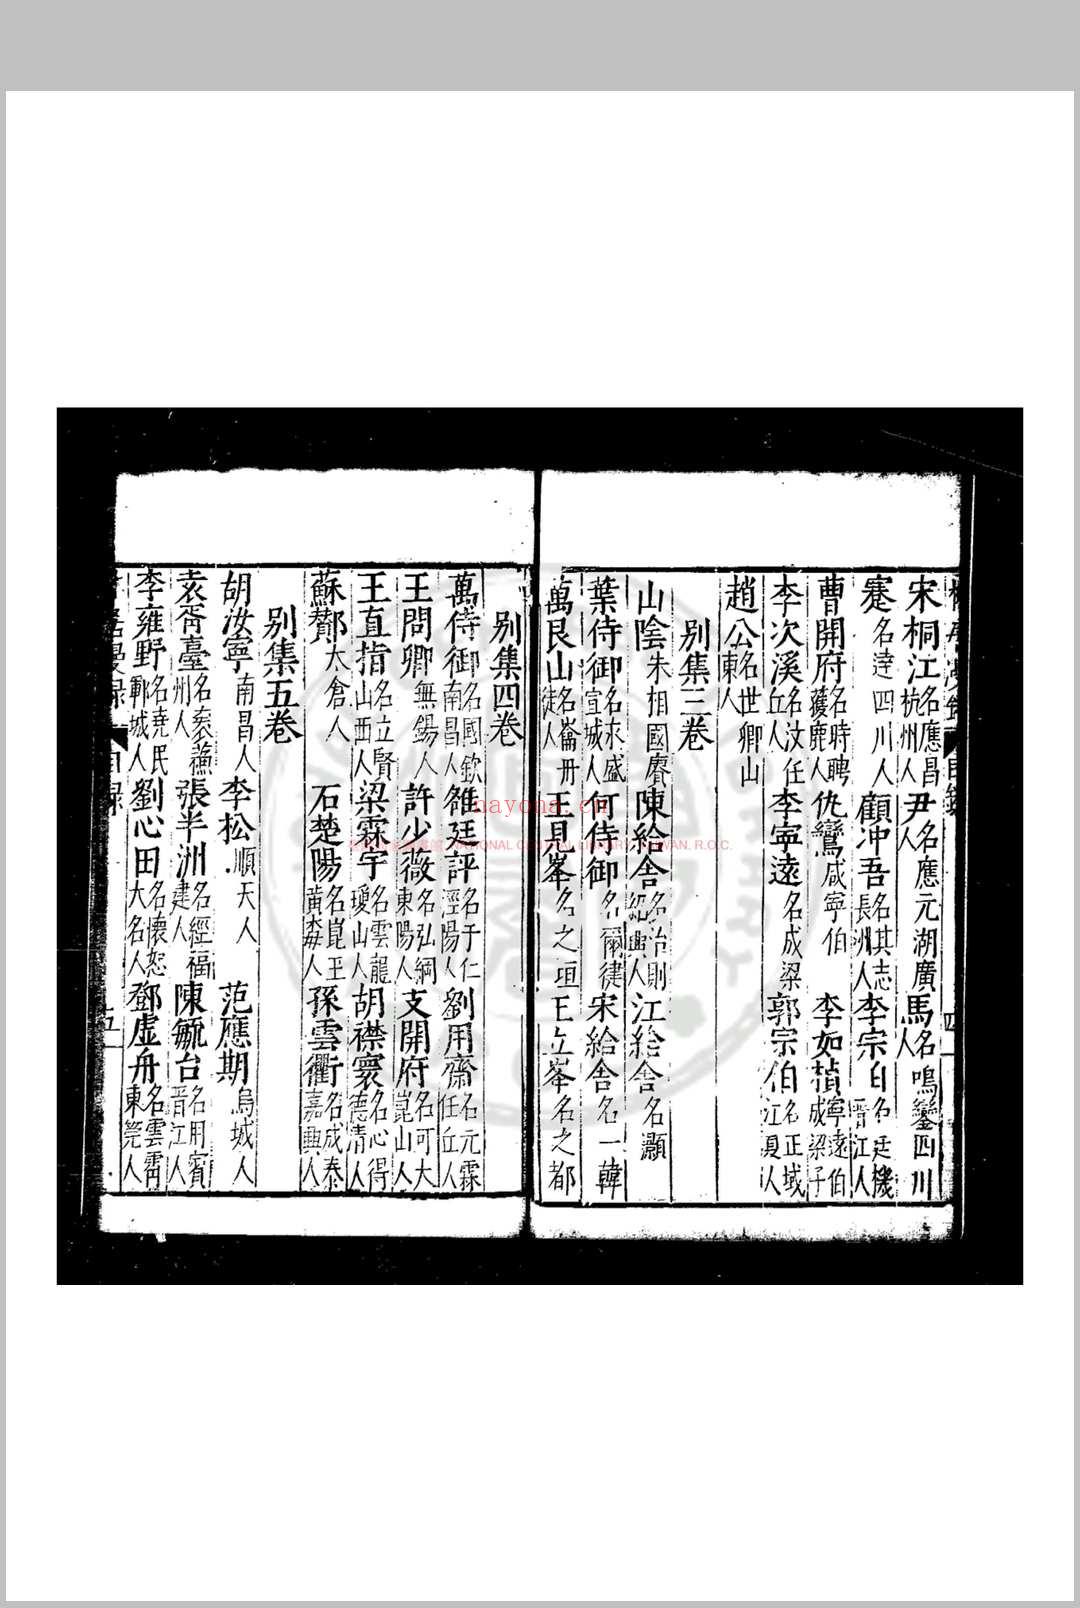 宋桐江名應昌杭州人尹名應元湖廣人馬名鳴鑾四川人
蹇名達四川人顧冲吾名其志長洲人李宗伯名廷機晋江人
曹開府名時聘獲鹿人仇鸞咸寧伯李如楨寧遠伯成梁子
李次溪名汶任丘人李寧遠名成梁郭宗伯名正域江夏人
趙公名世卿山東人
别集三卷
山陰朱相國賡陳給舍名治則紹興人江給舍名灝
葉侍御名永盛宣城人何侍御名爾健宋給舍名一韓
萬艮山名崙丹徒人王見峯名之垣王立峯名之都
别集四卷
萬侍御名國欽南昌人雒廷評名于仁涇陽人劉用齋名元霖任丘人
王問卿無錫人許少薇名弘綱東陽人支開府名可大崑山人
王直指名立賢山西人梁霖宇名雲龍瓊山人胡襟寰名心得德清人
蘇酇太倉人石楚陽名崑玉黃梅人孫雲衢名成泰嘉興人
别集五卷
胡汝寧南昌人李松順天人范應期烏城人
袁胥臺名袠蘓州人張半洲名經福建人陳毓台名用賓晋江人
李雍野名堯民鄆城人劉心田名懷恕大名人鄧虛舟名雲霄東莞人
目錄
五
nayona.cn
NATIONAL CENTRAL LIBRARY, TAIWAN, R.O.C.